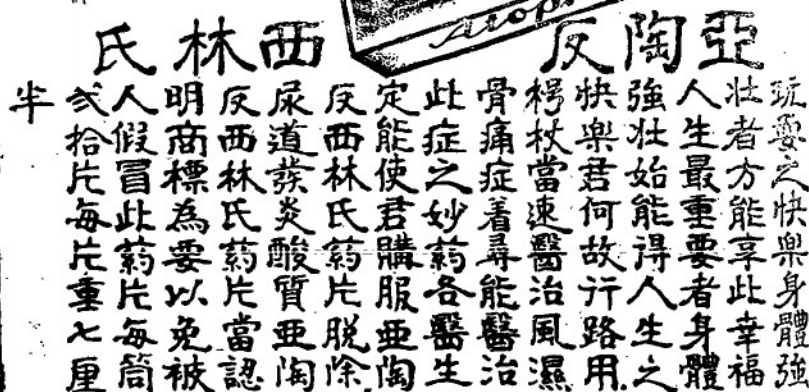 亞陶反
西林氏
Atop
玩耍之快樂身體強
壯者方能享此幸福
人生最重要者身體
強壯始能得人生之
快樂君何故行路用
柺杖當速醫治風濕
骨痛症着尋能醫治
此症之妙葯各醫生
定能使君購服亞陶
反西林氏葯片脫除
尿道發炎酸質亞陶
反西林氏葯片當認
明商標為要以免被
人假冒此葯片每筒
弍拾片每片重七厘
半